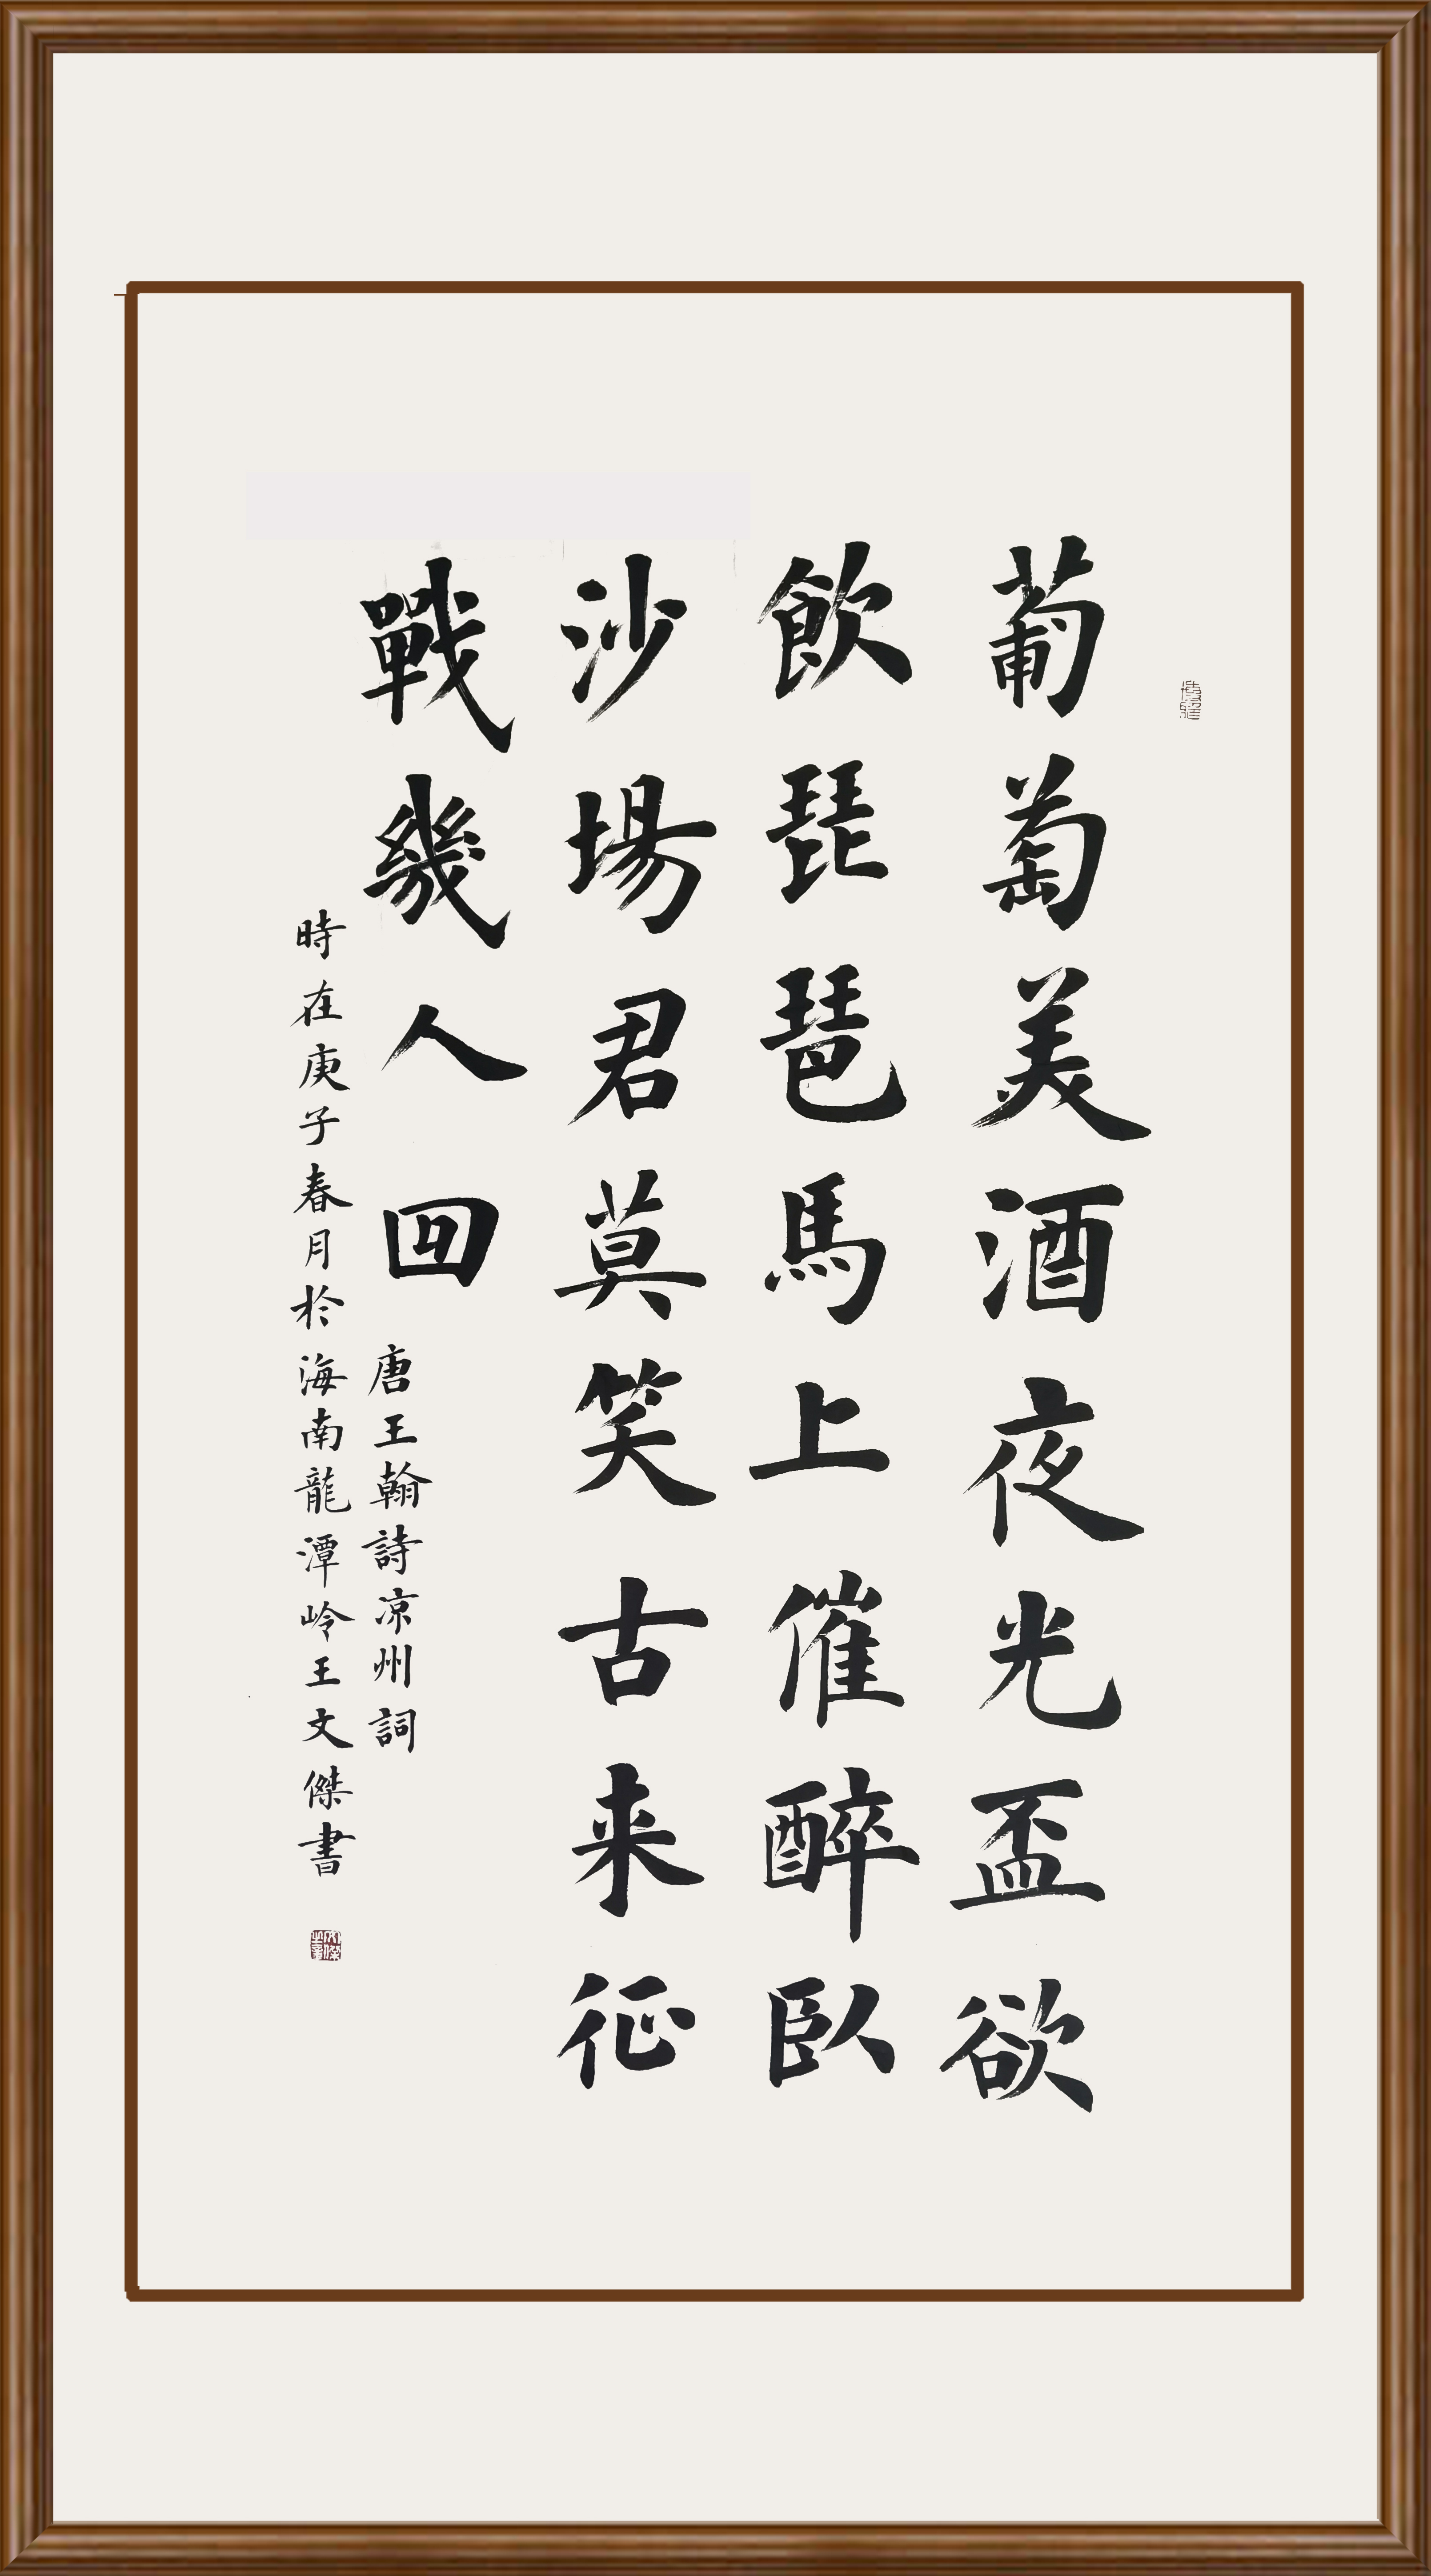 葡萄美酒夜光盃欲
飲琵琶馬上催醉臥
沙場君莫笑古来征
戰幾人回
唐王翰詩凉州詞
時在庚子春月於海南龍潭岭王文傑書